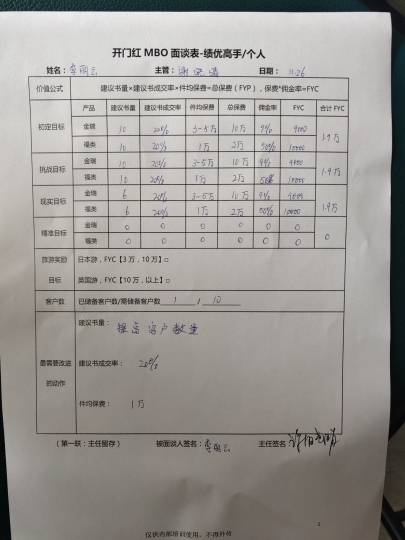 开门红 MBO 面谈表-绩优高手/个人
姓名： 主管： 日期： 11.26
价值公式 建议书量×建议书成交率×件均保费=总保费（FYP），保费*佣金率=FYC
产品 建议书量 建议书成交率 件均保费 总保费 佣金率 FYC 合计 FYC
初定目标 金瑞 10 20% 3-5万 10万 9% 9000 1.9万
福类 10 20% 1万 2万 50% 10000
挑战目标 金瑞 10 20% 3-5万 10万 9% 9000 1.9万
福类 10 20% 1万 2万 50% 10000
现实目标 金瑞 6 20% 3-5万 10万 9% 9000 1.9万
福类 6 20% 1万 2万 50% 10000
精准目标 金瑞 0 0 0 0 0 0 0
福类 0 0 0 0 0 0
旅游奖励目标 日本游，FYC【3 万，10 万】□
英国游，FYC【10 万，以上】□
客户数 已储备客户数/需储备客户数 1 / 10
最需要改进的动作 建议书量： 提高客户数量
建议书成交率： 20%
件均保费： 1万
（第一联：主任留存） 被面谈人签名： 主任签名：
2
仅供内部培训使用，不得外传